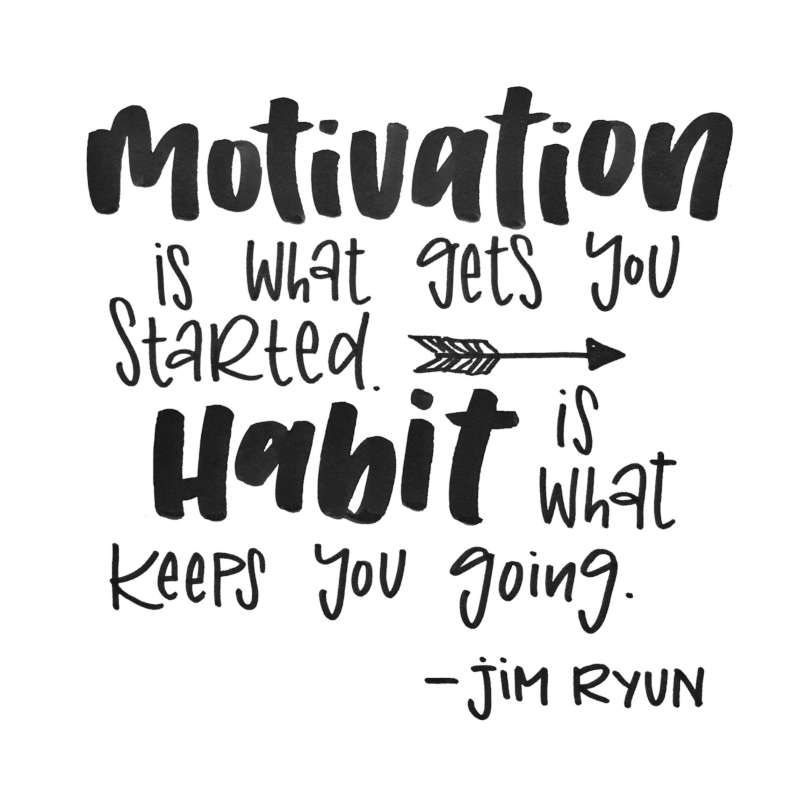 Motivation
is what gets you
started.
Habit is
what
keeps you going.
- Jim Ryun